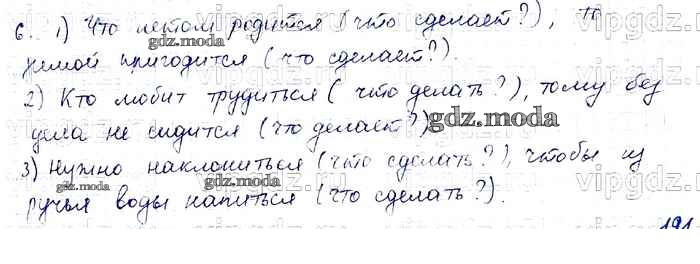 6. 1) Что летом родится (что сделает?), то
зимой пригодится (что сделает?).
2) Кто любит трудиться (что делать?), тому без
дела не сидится (что делает?)
3) Нужно наклониться (что сделать?), чтобы из
ручья воды напиться (что сделать?).
191
gdz.moda
gdz.moda
gdz.moda
gdz.moda
gdz.moda
vipgdz
vipgdz
vipgdz